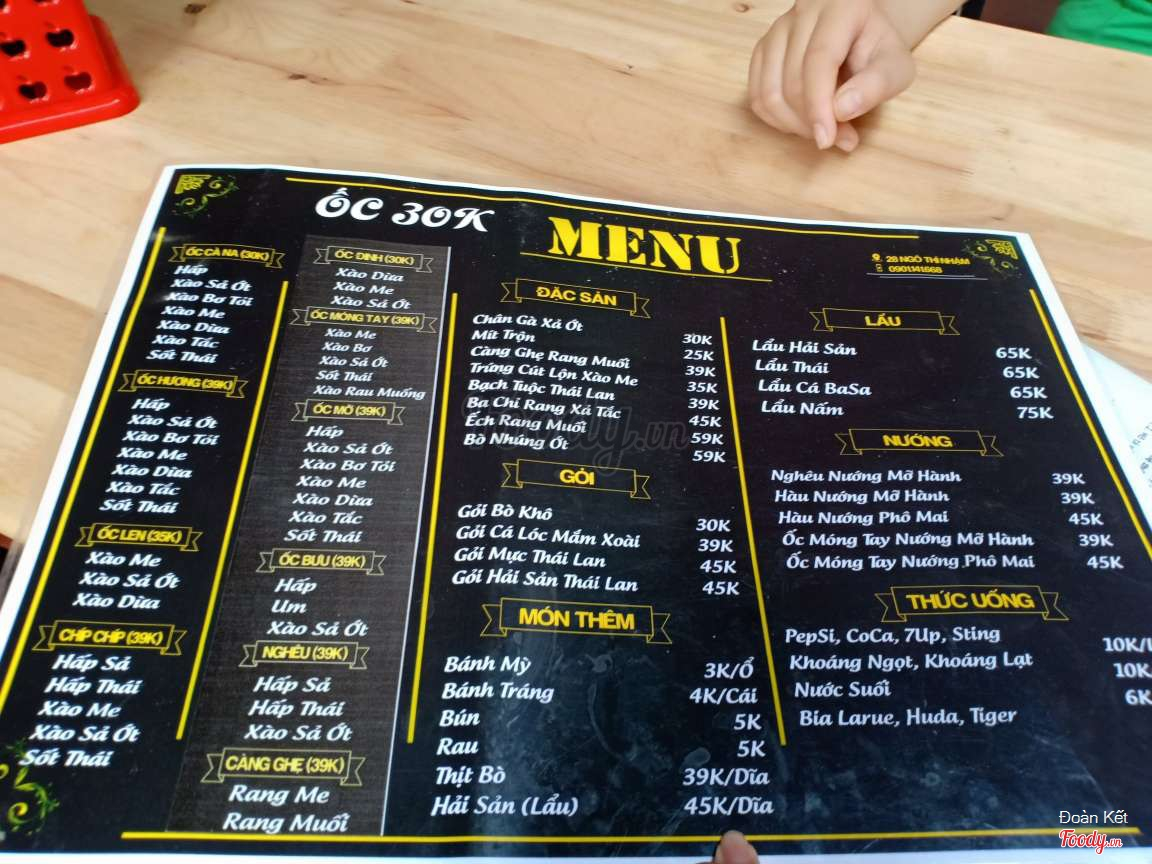 ỐC 30K
MENU
28 NGÔ THÌ NHẬM
0901141668
ỐC CÀ NA (30K)
Hấp
Xào Sả Ớt
Xào Bơ Tỏi
Xào Me
Xào Dừa
Xào Tắc
Sốt Thái
ỐC HƯƠNG (39K)
Hấp
Xào Sả Ớt
Xào Bơ Tỏi
Xào Me
Xào Dừa
Xào Tắc
Sốt Thái
ỐC LEN (35K)
Xào Me
Xào Sả Ớt
Xào Dừa
CHÍP CHÍP (39K)
Hấp Sả
Hấp Thái
Xào Me
Xào Sả Ớt
Sốt Thái
ỐC ĐINH (30K)
Xào Dừa
Xào Me
Xào Sả Ớt
ỐC MÓNG TAY (39K)
Xào Me
Xào Bơ
Xào Sả Ớt
Sốt Thái
Xào Rau Muống
ỐC MỠ (39K)
Hấp
Xào Sả Ớt
Xào Bơ Tỏi
Xào Me
Xào Dừa
Xào Tắc
Sốt Thái
ỐC BƯU (39K)
Hấp
Um
Xào Sả Ớt
NGHÊU (39K)
Hấp Sả
Hấp Thái
Xào Sả Ớt
CÀNG GHẸ (39K)
Rang Me
Rang Muối
ĐẶC SẢN
Chân Gà Xả Ớt 30K
Mít Trộn 25K
Càng Ghẹ Rang Muối 39K
Trứng Cút Lộn Xào Me 35K
Bạch Tuộc Thái Lan 39K
Ba Chỉ Rang Xả Tắc 45K
Ếch Rang Muối 59K
Bò Nhúng Ớt 59K
GỎI
Gỏi Bò Khô 30K
Gỏi Cá Lóc Mắm Xoài 39K
Gỏi Mực Thái Lan 45K
Gỏi Hải Sản Thái Lan 45K
MÓN THÊM
Bánh Mỳ 3K/Ổ
Bánh Tráng 4K/Cái
Bún 5K
Rau 5K
Thịt Bò 39K/Dĩa
Hải Sản (Lẩu) 45K/Dĩa
LẨU
Lẩu Hải Sản 65K
Lẩu Thái 65K
Lẩu Cá BaSa 65K
Lẩu Nấm 75K
NƯỚNG
Nghêu Nướng Mỡ Hành 39K
Hàu Nướng Mỡ Hành 39K
Hàu Nướng Phô Mai 45K
Ốc Móng Tay Nướng Mỡ Hành 39K
Ốc Móng Tay Nướng Phô Mai 45K
THỨC UỐNG
PepSi, CoCa, 7Up, Sting 10K/
Khoáng Ngọt, Khoáng Lạt 10K
Nước Suối 6K
Bia Larue, Huda, Tiger
Đoàn Kết
Foody.vn